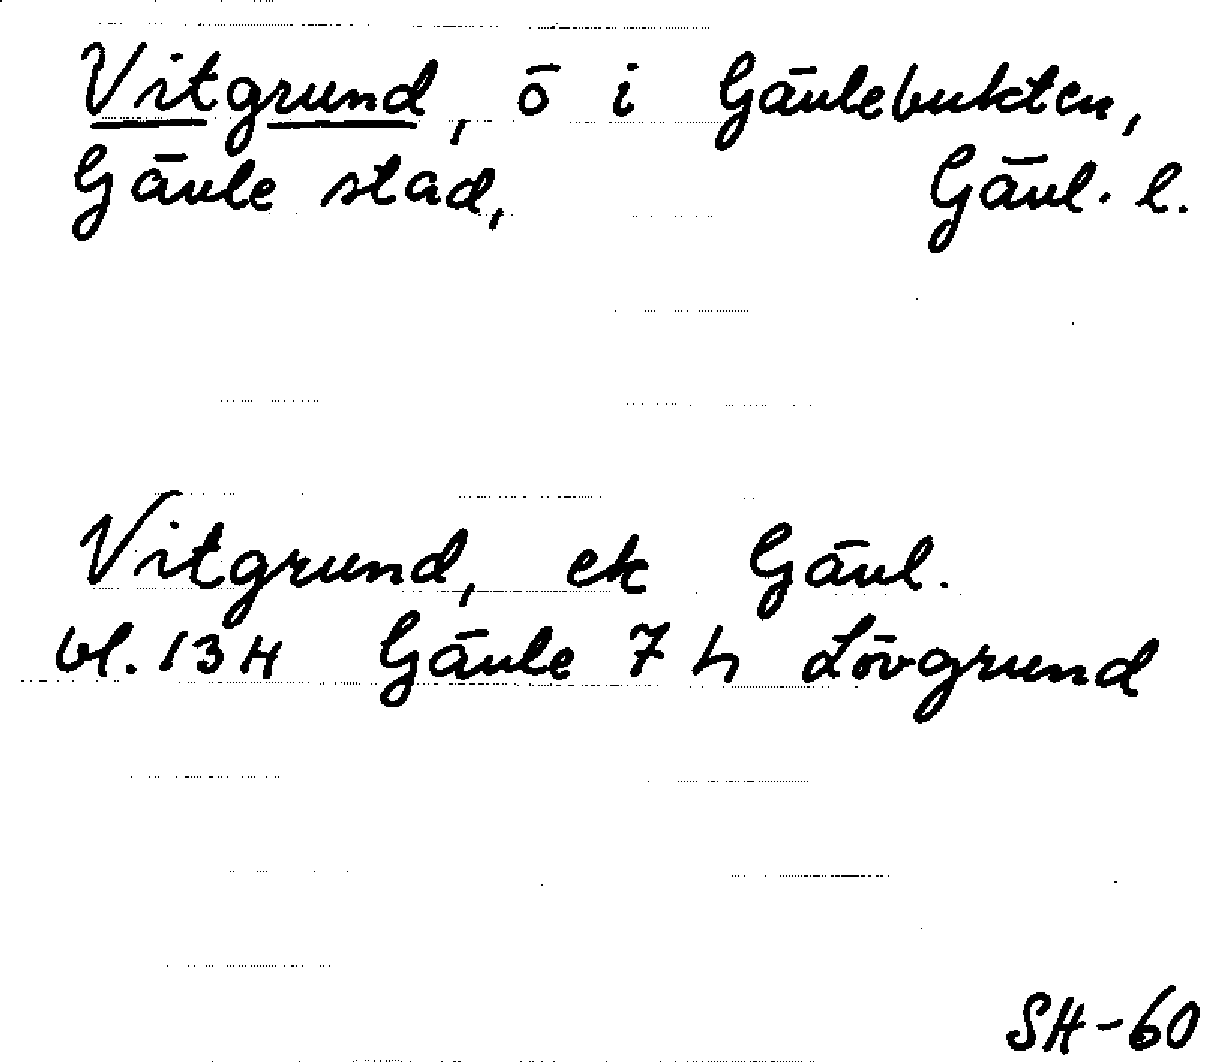 Vitgrund, ö i Gävlebukten,
Gävle stad, Gävl. l.
Vitgrund, ek Gävl.
bl. 13H Gävle 7 h Lövgrund
SH-60